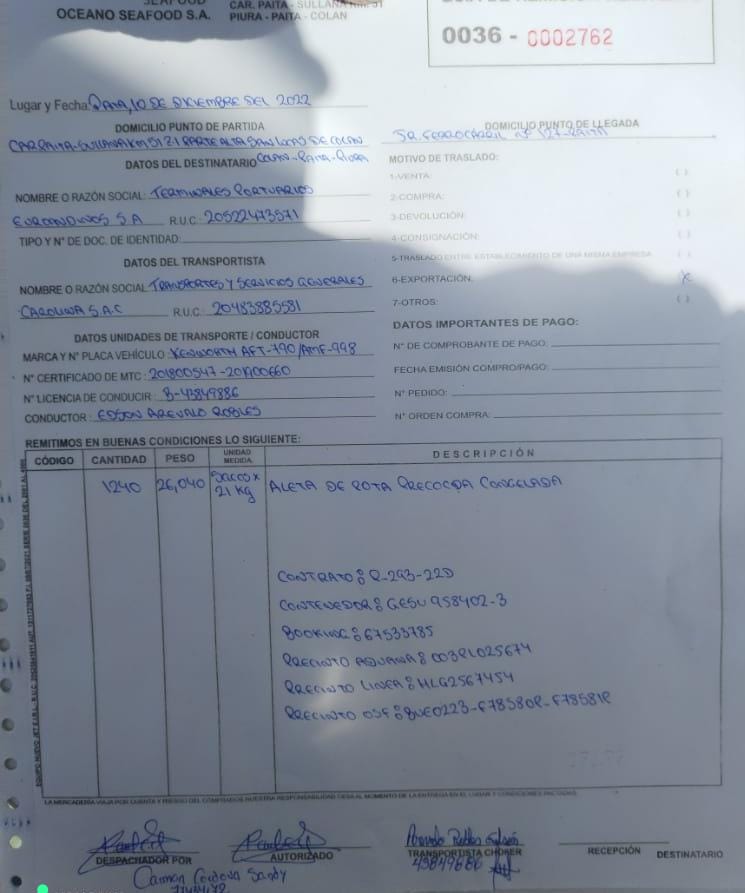 SEAFOOD
OCEANO SEAFOOD S.A.
CAR. PAITA - SULLANA
PIURA - PAITA - COLAN
0036 - 0002762
Lugar y Fecha: Paita, 10 DE DICIEMBRE DEL 2022
DOMICILIO PUNTO DE PARTIDA
CAR PAITA-SULLANA KM 5121 PARTE ALTA SAN LUCAS DE COLAN
COLAN-PAITA-PIURA
DOMICILIO PUNTO DE LLEGADA
JR. FERROCARRIL Nº 127-PAITA
DATOS DEL DESTINATARIO
NOMBRE O RAZÓN SOCIAL: TERMINALES PORTUARIOS
EUROANDINOS S A R.U.C: 20522473571
TIPO Y N° DE DOC. DE IDENTIDAD:
DATOS DEL TRANSPORTISTA
NOMBRE O RAZÓN SOCIAL TRANSPORTES Y SERVICIOS GENERALES
CAROLINA S.A.C R.U.C: 20483885581
DATOS UNIDADES DE TRANSPORTE / CONDUCTOR
MARCA Y N° PLACA VEHÍCULO: KENWORTH AFT-790/AMF-998
N° CERTIFICADO DE MTC: 201800547-201900660
N° LICENCIA DE CONDUCIR: B-43849886
CONDUCTOR: EDSON AREVALO ROBLES
MOTIVO DE TRASLADO:
1-VENTA: ( )
2-COMPRA: ( )
3-DEVOLUCIÓN: ( )
4-CONSIGNACIÓN: ( )
5-TRASLADO ENTRE ESTABLECIMIENTO DE UNA MISMA EMPRESA ( )
6-EXPORTACIÓN: X
7-OTROS: ( )
DATOS IMPORTANTES DE PAGO:
N° DE COMPROBANTE DE PAGO:
FECHA EMISIÓN COMPRO/PAGO:
N° PEDIDO:
N° ORDEN COMPRA:
REMITIMOS EN BUENAS CONDICIONES LO SIGUIENTE:
CÓDIGO CANTIDAD PESO UNIDAD MEDIDA DESCRIPCIÓN
1240 26,040 SACCO x 21 Kg ALETA DE POTA PRECOCIDA CONGELADA
CONTRATO: P-293-22D
CONTENEDOR: GESU 958402-3
BOOKING: 67533785
PRECINTO ADUANA: 003PL025674
PRECINTO LINEA: MLG2567454
PRECINTO OSF: BUE0223-F78580R-F78581R
LA MERCADERÍA VIAJA POR CUENTA Y RIESGO DEL COMPRADOR NUESTRA RESPONSABILIDAD CESA AL MOMENTO DE LA ENTREGA EN EL LUGAR Y CONDICIONES PACTADAS
DESPACHADOR POR
Carmen Cordova Sandy
AUTORIZADO
Arevalo Robles Edson
TRANSPORTISTA CHOFER
43849886
RECEPCIÓN
DESTINATARIO